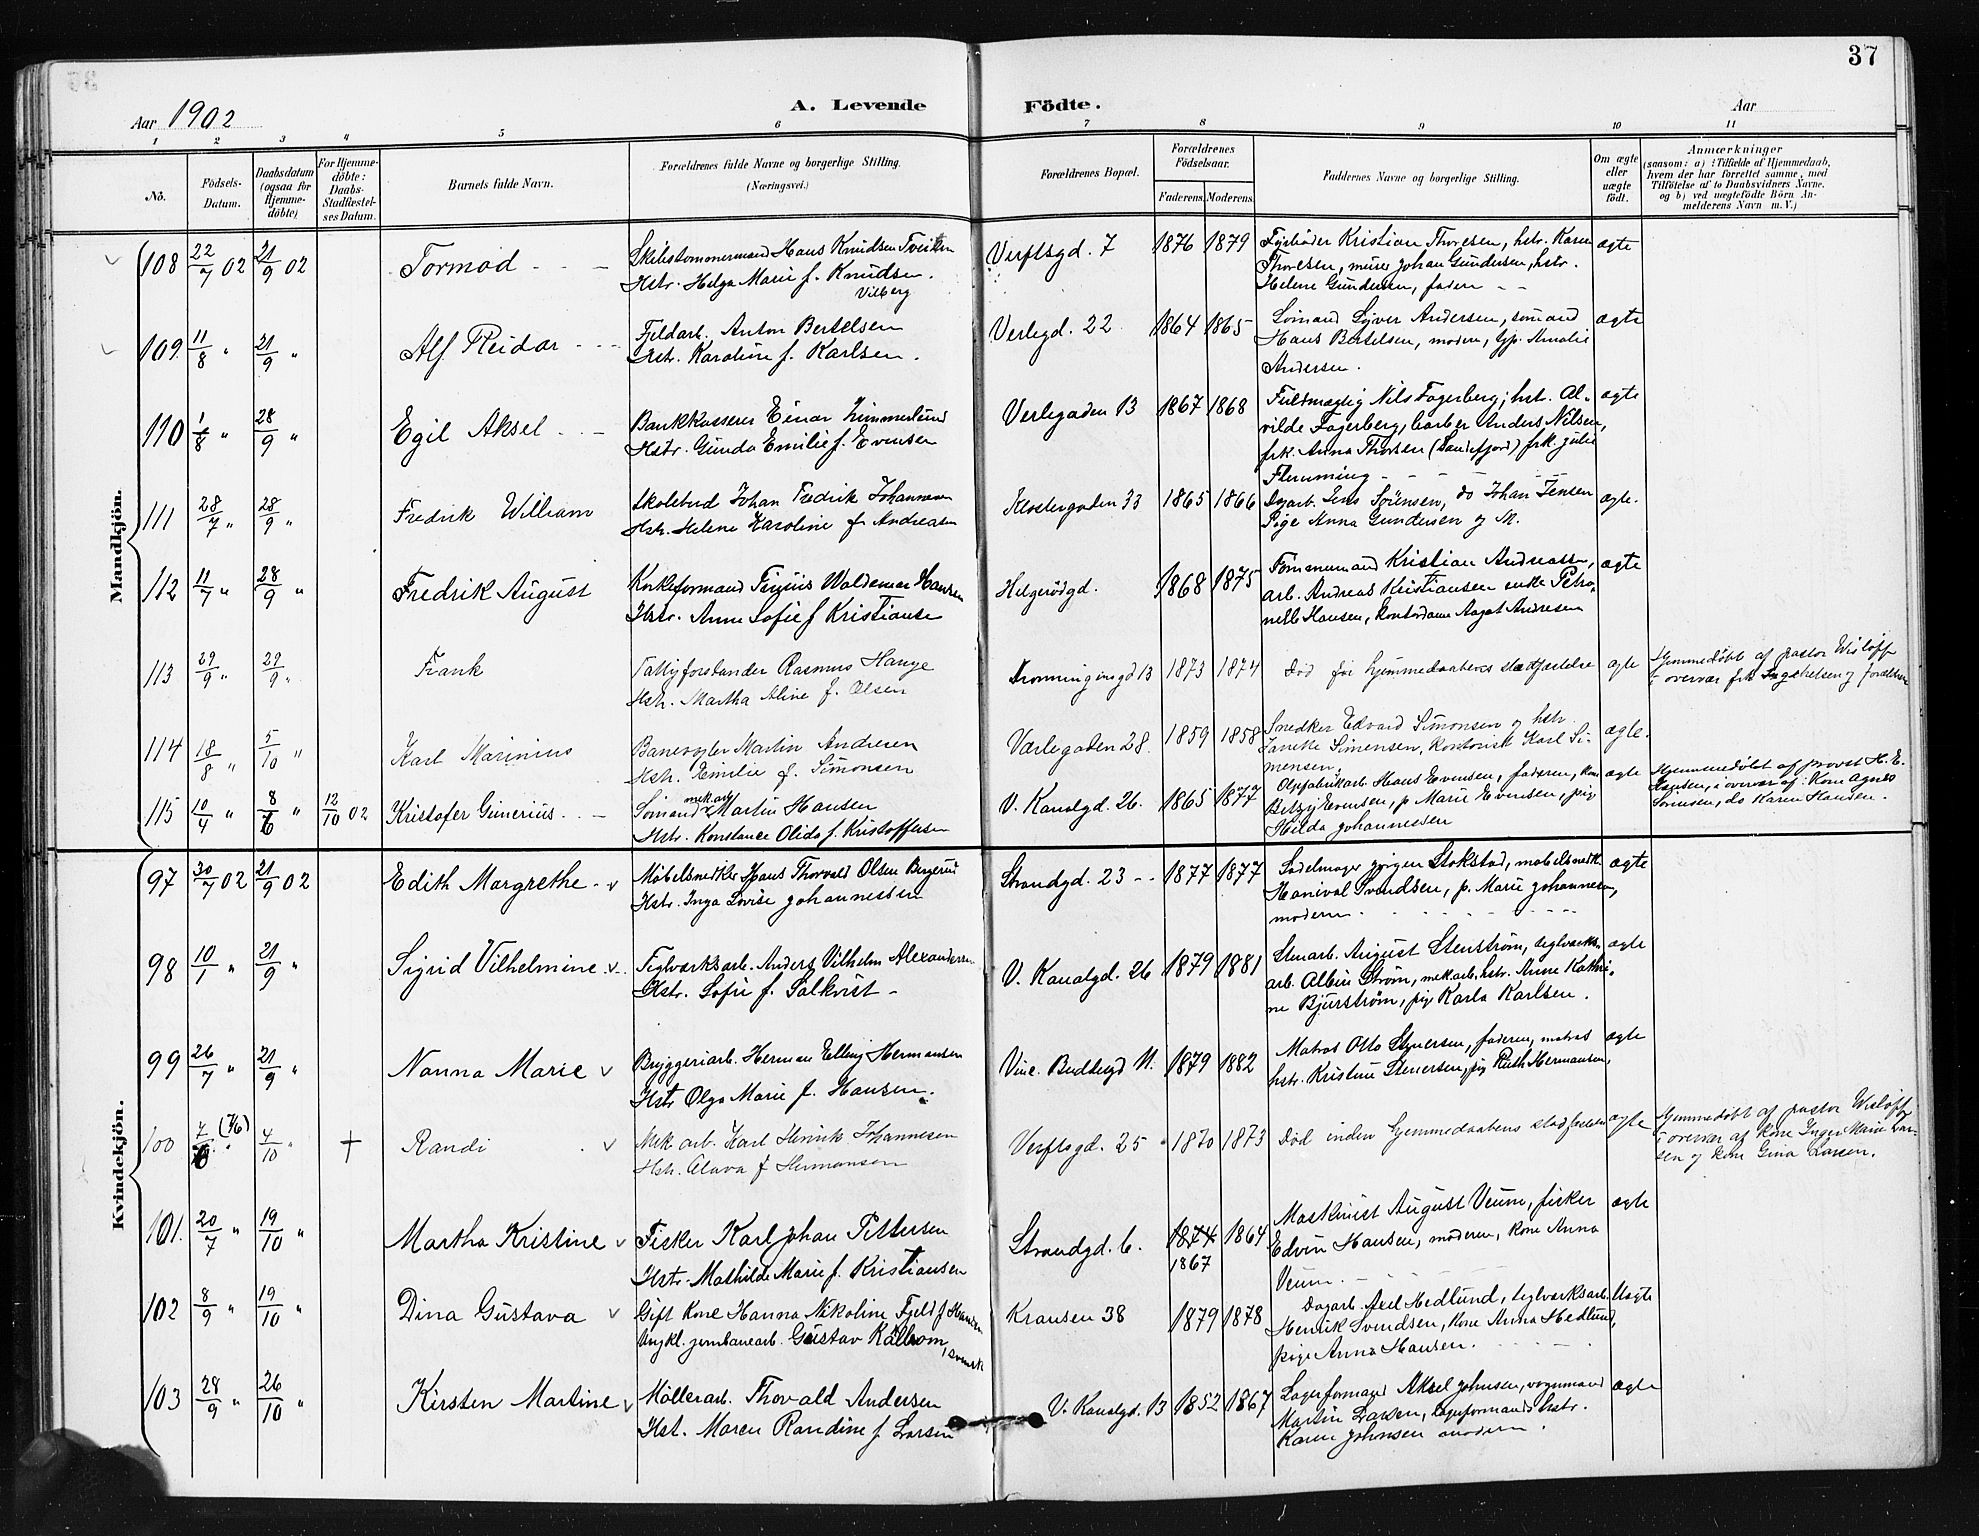 37
Aar 1902
A. Levende Födte.
Aar
1 2 3 4 5 6 7 8 9 10 11
No.
Födsels-Datum.
Daabsdatum (ogsaa for Hjemme-döbte)
For Hjemme-döbte: Daabs-Stadfæstel-ses Datum.
Barnets fulde Navn.
Forældrenes fulde Navne og borgerlige Stilling. (Næringsvei.)
Forældrenes Bopæl.
Forældrenes Födselsaar.
Faderens. Moderens.
Faddernes Navne og borgerlige Stilling.
Om ægte eller uægte födt.
Anmærkninger
(saasom: a) i Tilfælde af Hjemmedaab, hvem der har forrettet samme, med Tilföielse af to Daabsvidners Navne, og b) ved uægtefödte Börn An-melderens Navn m. V.)
Mandkjön.
108 22/7 02 21/9 02 Tormod
Hans Knudsen Tveiten
Hstr. Helga Marie f. Knudsen.
Vilberg
Verftsgd. 7 1876 1879
Kristian Thoresen, hstr. Karen
Thoresen, murer Johan Gundersen, hstr.
Helene Gundersen, faderen
ægte
109. 11/8 " 21/9 " Alf Reidar
Fjeldarb. Anton Bertelsen
Hstr. Karoline f. Karlsen.
Verlegd. 22 1864 1865
Sømand Syver Andersen, sømand
Hans Bertelsen, moderen, Amalie
Andersen.
ægte
110 1/8 " 28/9 " Egil Aksel
Bankkasserer Einar Zimmerlund
Hstr. Gunda Emilie f. Evensen
Verlegaden 13 1867 1868
Nils Fagerberg, hst. Al-
vilde Fagerberg, barber Anders Nilsen,
frk. Anna Thorsen (Sandefjord) frk. Julie
Flemming
ægte
111 28/7 " 28/9 " Fredrik William
Skolebud Johan Fredrik Johannesen
Hstr. Helene Karoline f. Andreasen
Klostergaden 33 1865 1866
Dagarb. Jens Sørensen, do Johan Jensen
Pige Anna Gundersen og M.
ægte.
112 11/7 " 28/9 " Fredrik August
Waldemar Hansen
Hstr. Anne Sofie f Kristiansen
Helgerødgd. 1868 1875
Kristian Andreassen,
arb. Andreas Kristiansen enke Petro-
nelle Hansen, Kontordame Aagot Andresen
ægte
113 29/9 " 29/9 " Frank
Rasmus Hauge
Hstr. Martha Aline f. Olsen
Dronningensgd 13 1873 1874
Død før hjemmedaabens stadfæstelse
ægte
Hjemmedøbt af pastor Wisløff
i overvær frk og forældrene
114 18/8 " 5/10 " Karl Marinius
Banevogter Martin Andresen
Hstr. Emilie f. Simonsen
Værlegaden 28. 1859 1858
Snedker Edvard Simonsen og hstr.
Janette Simensen, Kontorist Karl Si-
mensen.
ægte.
115 10/4 " 8/6 " 12/10 02 Kristofer Gunerius
mek.arb
Sømand Martin Hansen
Hstr. Konstance Olida f. Kristoffersen
V. Kanalgd. 26. 1865 1877
Hans Evensen, faderen, kone
Betzy Evensen, p. Marie Evensen, pige
Hilda Johannessen
ægte
Hjemmedøbt af provst H. E.
Hansen, i overvær af: Kone Agnes
Sørensen, do Karen Hansen.
Kvindekjön.
97 30/7 02 21/9 02 Edith Margrethe
Møbelsnedker Hans Thorvald Olsen Bugerud
Hstr. Inga Lovise Johannessen
Strandgd. 23 1877 1877
Sadelmager Jørgen Stokstad, møbelsnedk.
Hanival Svendsen, p. Marie Johannesen,
moderen.
ægte
98 10/1 " 21/9 " Sigrid Vilhelmine
Teglværksarb. Anders Vilhelm Alexandersen
Hstr. Sofie f. Salkvist
V. Kanalgd. 26 1879 1881
Stenarb. August Stenstrøm, teglværks-
arb. Albin Strøm, mekarb. hstr. Anne Kathri-
ne Bjurstrøm, pige Karla Karlsen.
ægte
99 26/7 " 21/9 " Nanna Marie
Bryggeriarb. Herman Elling Hermansen
Hstr Olga Marie f. Hansen.
1879 1882
Matros Otto Stenersen, faderen, matros
hstr. Kristine Stenersen, pig Ruth Hermansen,
ægte
100 (7/6) 4/10 " † Randi
Mek arb. Karl Henrik Johannesen
Hstr. Olava f Hermansen
Verftsgd. 25 1870 1873
Død inden hjemmedaabens stadfæstelse
ægte
Hjemmedøbt af pastor Wisløff
i overvær af kone Inger Marie Lar-
sen og kone Gina Larsen.
101. 20/7 " 19/10 " Martha Kristine
Fisker Karl Johan Pettersen
Hstr. Mathilde Marie f. Kristiansen
Strandgd. 6. 1874 1864
1867
Maskinist August Veum, fisker
Edvin Hansen, moderen, kone Anna
Veum.
ægte
102 8/9 " 19/10 " Dina Gustava
Gift Kone Hanna Nikoline Fjeld f Hansen
Ungkl. jernbanearb. Gustav Källrom, svensk
Kransen 38 1879 1878
Dagarb. Axel Hedlund, teglverksarb.
Henrik Svendsen, kone Anna Hedlund,
pige Anna Hansen.
Uægte
103 28/9 " 26/10 " Kirsten Martine
Møllerarb. Thorvald Andersen
Hst. Maren Randine f Larsen
V. Kanalgd. 13 1852 1867
Lagerformand Aksel Johnsen, vognmand
Martin Larsen, lagerformands hstr.
Karen Johnsen moderen.
ægte